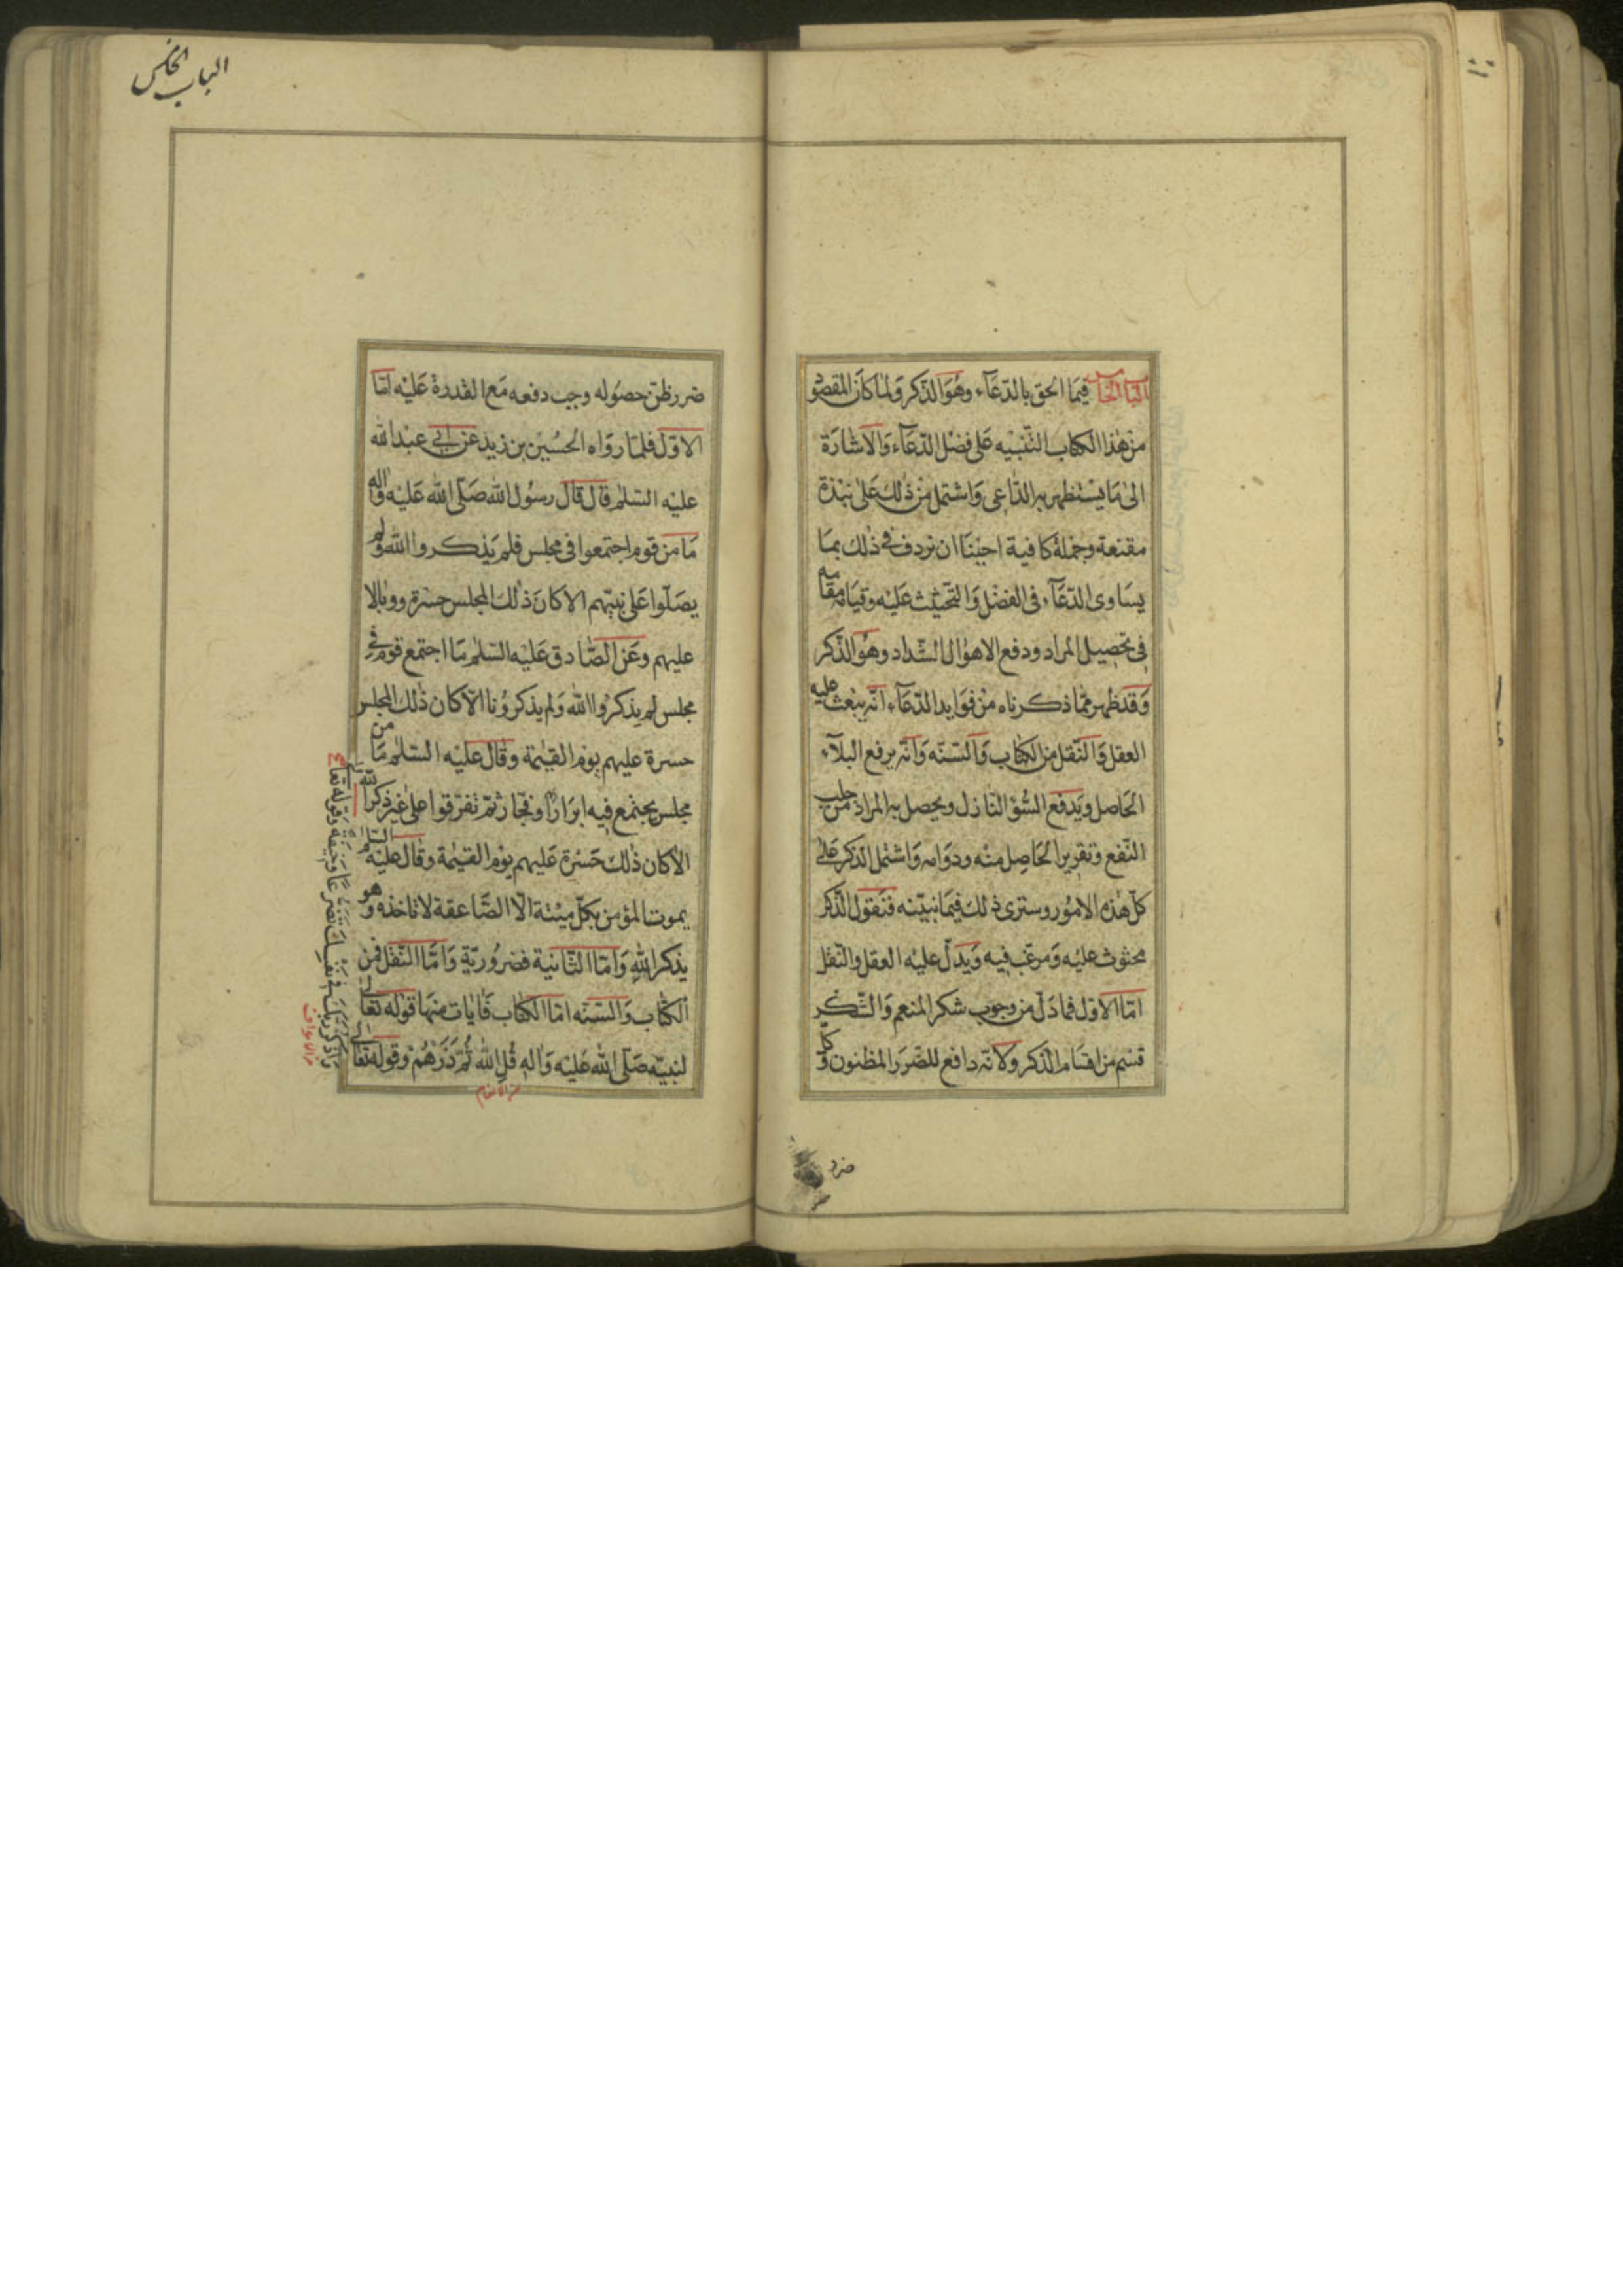 الباب الخامس فيما الحق بالدّعآء وهو الذّكر ولما كان المقصود
من هذا الكتاب التّنبيه على فضل الدّعآء والاشارة
الى ما يستظهر به الدّاعى واشتمل من ذلك على نبذة
مقنعة وجملة كافية احببنا ان نردف فى ذلك بما
يساوى الدّعآء فى الفضل والتحيثث عليه وقيامه مقامه
فى تحصيل المراد ودفع الاهوال الشّداد وهو الذّكر
وقد ظهر ممّا ذكرناه من فوايد الدّعآء انّه يبعث عليه
العقل والنّقل من الكتاب والسّنّه وانّه يرفع البلآء
الحاصل ويدفع السّؤ النّازل ويحصل به المراد من جلب
النّفع وتقرير الحاصل منه ودوامه واشتمل الذّكر على
كلّ هذه الامور وسترى ذلك فيما نبيّنه فنقول الذّكر
محثوث عليه ومرغّب فيه ويدلّ عليه العقل والنّقل
امّا الاوّل فما دلّ من وجوب شكر المنعم والشّكر
قسم من اقسام الذّكر ولانّه دافع للضّرر المظنون وكلّ
ضرر
ضرر ظنّ حصوله وجب دفعه مع القدرة عليه امّا
الاوّل فلما رواه الحسين بن زيد عن ابى عبد الله
عليه السّلم قال قال رسول الله صلّى الله عليه واله
ما من قوم اجتمعوا فى مجلس فلم يذكروا الله ولم
يصلّوا على نبيّهم الا كان ذلك المجلس حسرة ووبالا
عليهم وعن الصّادق عليه السّلم ما اجتمع قوم فى
مجلس لم يذكروا الله ولم يذكرونا الّا كان ذلك المجلس
حسرة عليهم يوم القيمة وقال عليه السّلم ما من
مجلس يجتمع فيه ابرار او فجّار ثمّ تفرّقوا على غير ذكر الله
الا كان ذلك حسرة عليهم يوم القيمة وقال عليه السّلم
يموت المؤمن بكلّ ميتة الّا الصّاعقة لا تاخذه وهو
يذكر الله وامّا الثّانية فضروريّة وامّا النّقل فمن
الكتاب والسّنّه امّا الكتاب فايات منها قوله تعالى
لنبيّه صلّى الله عليه واله قل الله ثمّ ذرهم وقوله تعالى
واذكر ربّك فى نفسك تضرّعا وخيفة وقوله تعالى
من الانعام
من الاعراف
الباب الخامس